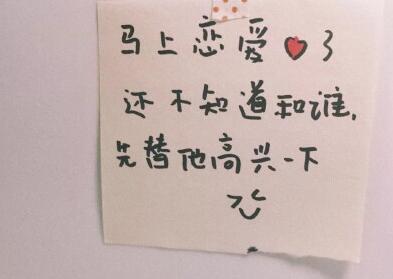 马上恋爱❤了
还不知道和谁,
先替他高兴一下